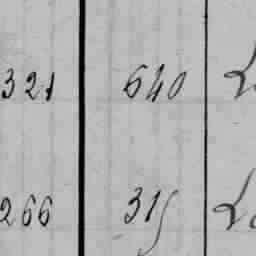 321 640
266 315